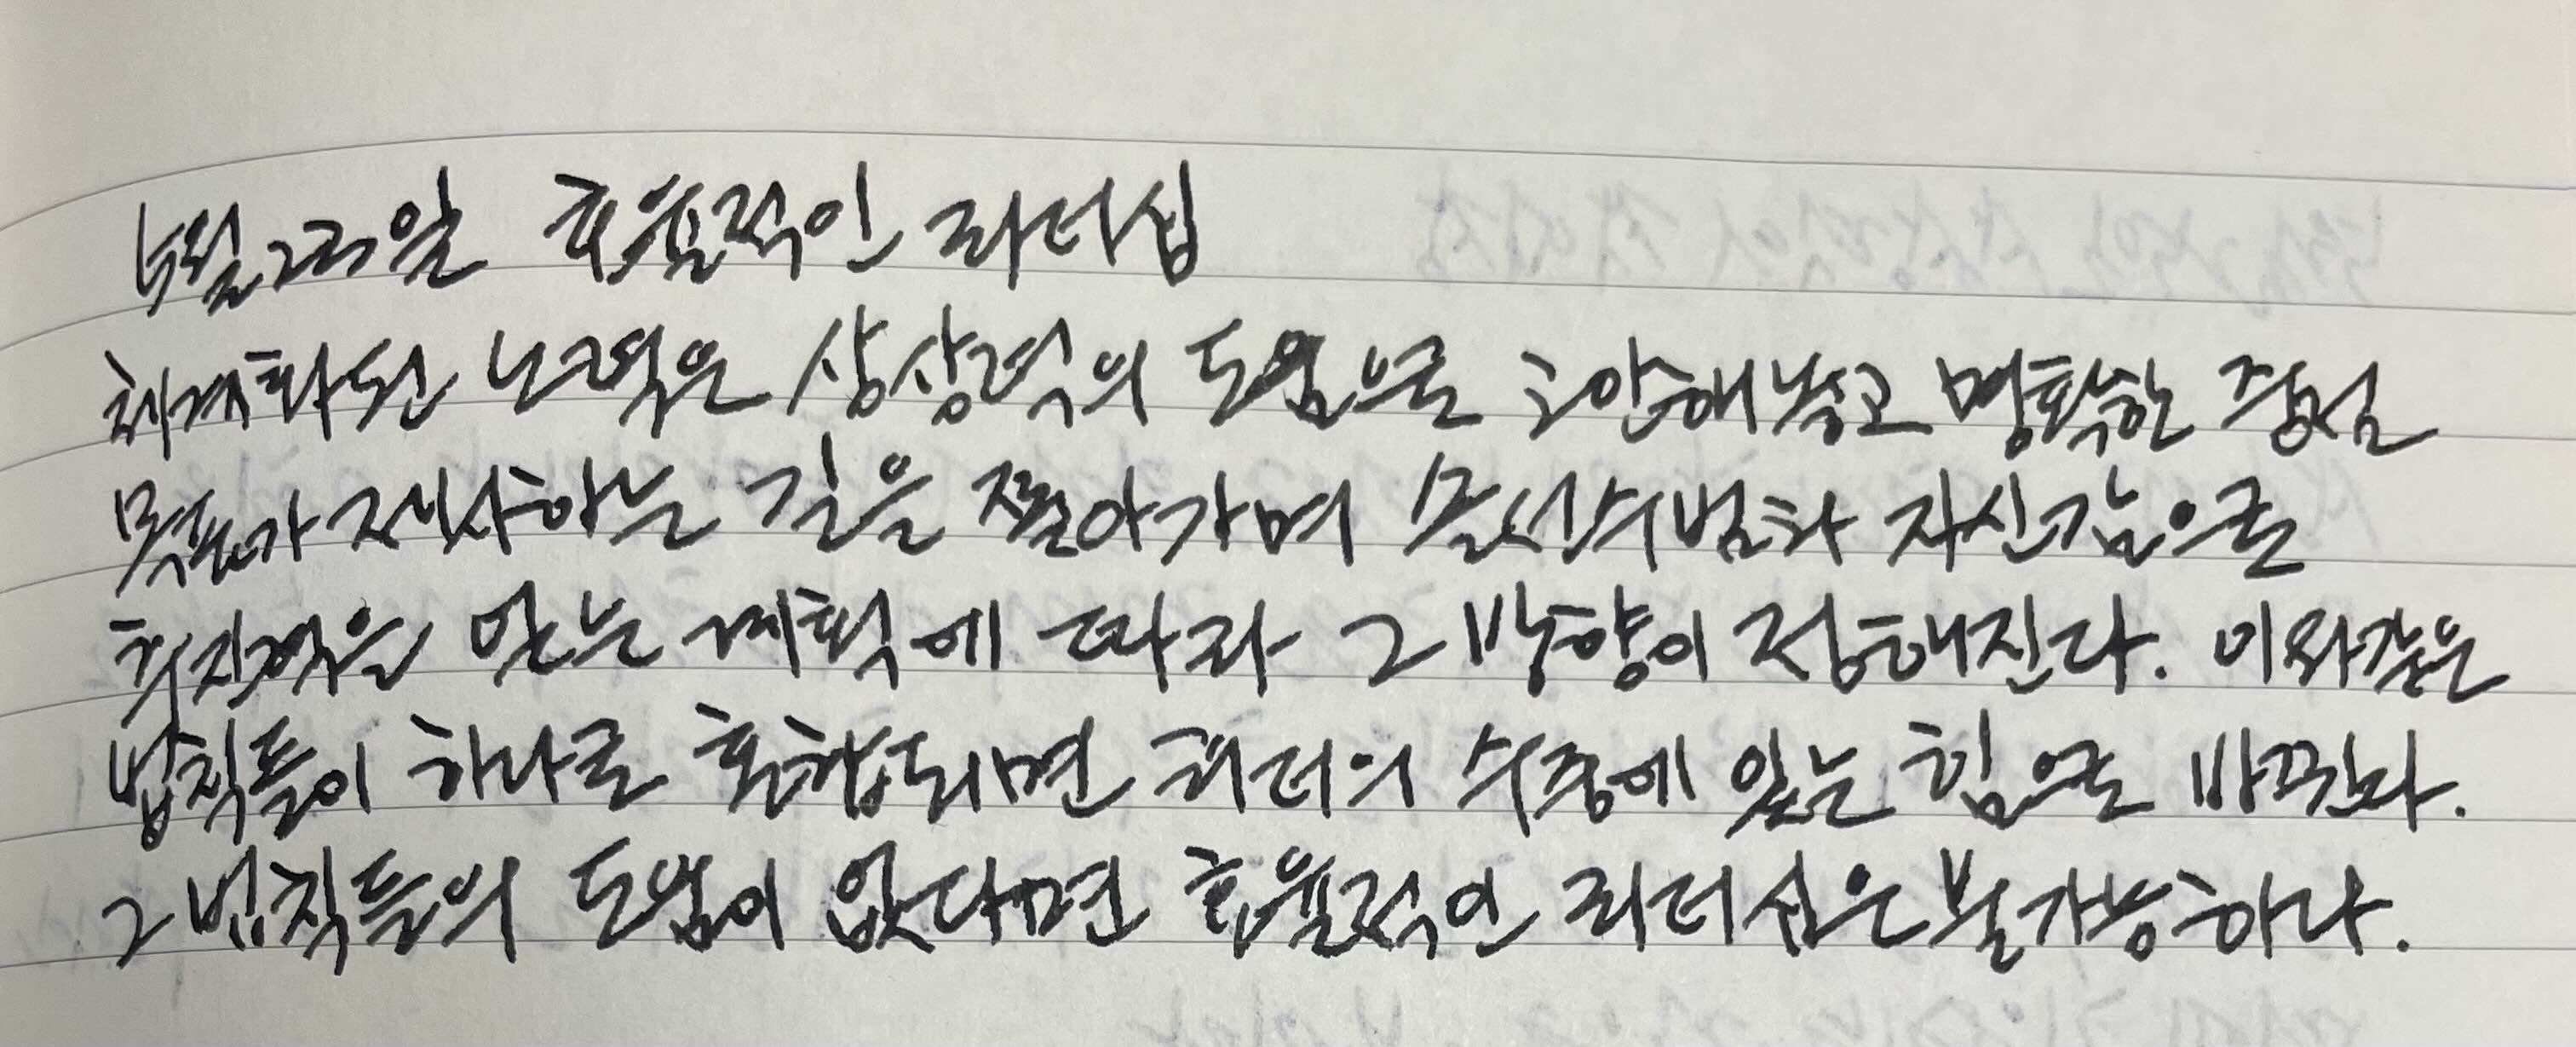 4월 23일 효율적인 리더십
체계화된 노력은 상상력의 도움으로 고안해놓고 명확한 중점
목표가 제시하는 길을 쫓아가며 솔선수범과 자신감으로
추진력을 얻는 계획에 따라 그 방향이 정해진다. 이와같은
법칙들이 하나로 혼합되면 리더의 수중에 있는 힘으로 바뀐다.
그 법칙들의 도움이 없다면 효율적인 리더십은 불가능하다.